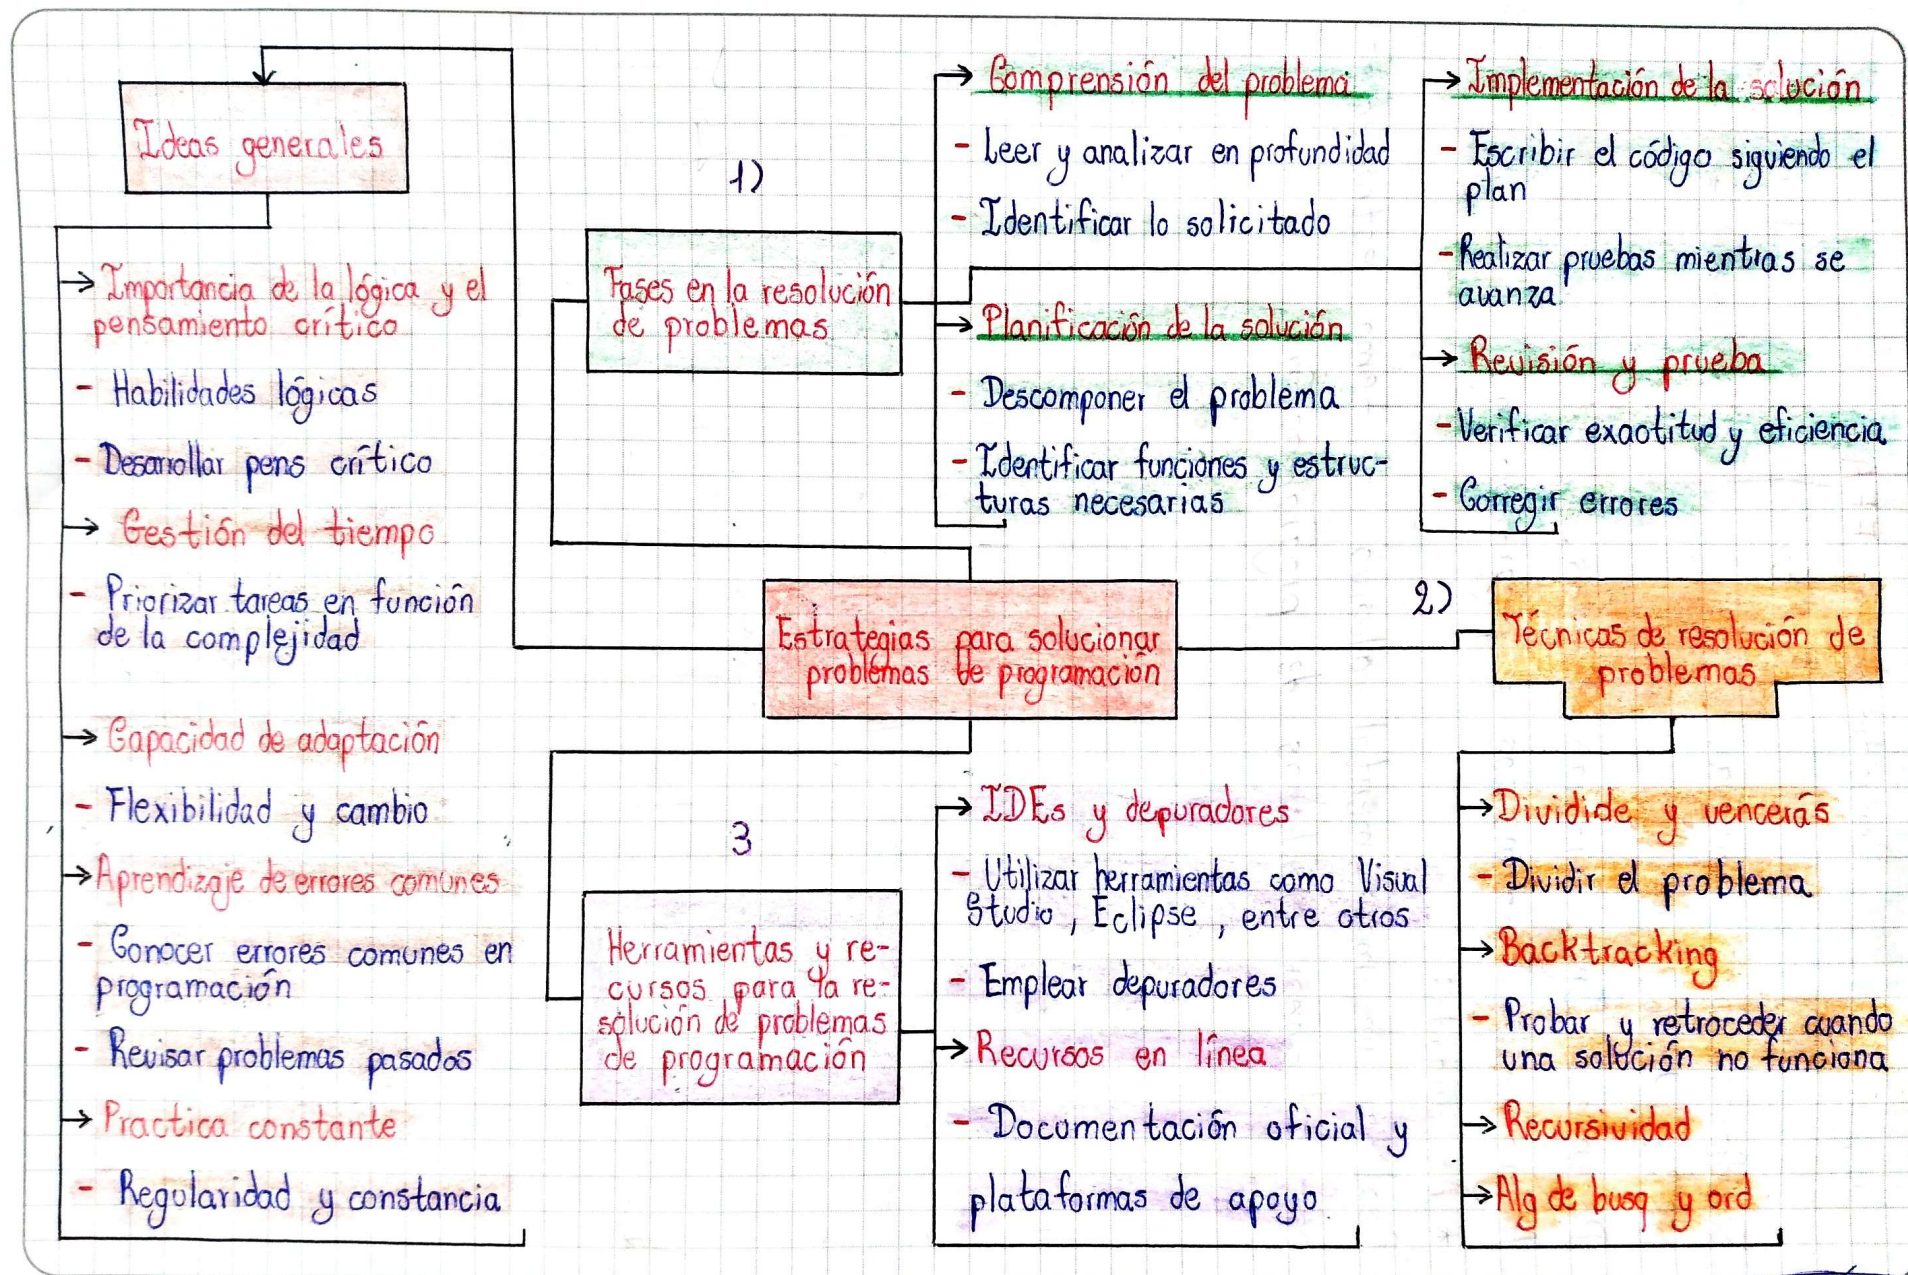 Ideas generales
→ Importancia de la lógica y el
pensamiento crítico
- Habilidades lógicas
- Desarrollar pens crítico
→ Gestión del tiempo
- Priorizar tareas en función
de la complejidad
→ Capacidad de adaptación
- Flexibilidad y cambio
→ Aprendizaje de errores comunes
- Conocer errores comunes en
programación
- Revisar problemas pasados
→ Practica constante
- Regularidad y constancia
1)
Fases en la resolución
de problemas
→ Comprensión del problema
- Leer y analizar en profundidad
- Identificar lo solicitado
→ Planificación de la solución
- Descomponer el problema
- Identificar funciones y estruc-
turas necesarias
→ Implementación de la solución
- Escribir el código siguiendo el
plan
- Realizar pruebas mientras se
avanza
→ Revisión y prueba
- Verificar exactitud y eficiencia
- Corregir errores
Estrategias para solucionar
problemas de programación
2)
Técnicas de resolución de
problemas
→ Dividide y vencerás
- Dividir el problema
→ Backtracking
- Probar y retroceder cuando
una solución no funciona
→ Recursividad
→ Alg de busq y ord
3
Herramientas y re-
cursos para la re-
solución de problemas
de programación
→ IDEs y depuradores
- Utilizar herramientas como Visual
Studio, Eclipse, entre otros
- Emplear depuradores
→ Recursos en línea
- Documentación oficial y
plataformas de apoyo